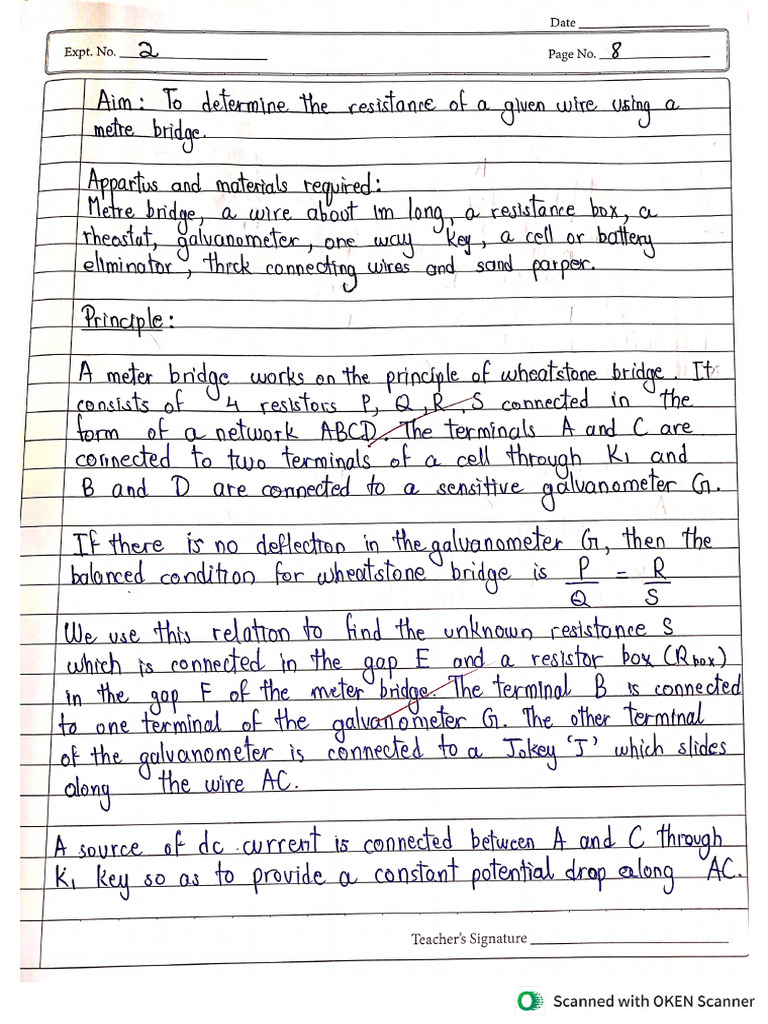 Date
Expt. No. 2
Page No. 8
Aim: To determine the resistance of a given wire using a
metre bridge.
Appartus and materials required:
Metre bridge, a wire about 1m long, a resistance box, a
rheostat, galvanometer, one way key, a cell or battery
eliminator, thick connecting wires and sand parper.
Principle:
A meter bridge works on the principle of wheatstone bridge. It
consists of 4 resistors P, Q, R, S connected in the
form of a network ABCD. The terminals A and C are
connected to two terminals of a cell through K1 and
B and D are connected to a sensitive galvanometer G.
If there is no deflection in the galvanometer G, then the
balanced condition for wheatstone bridge is P/Q = R/S
We use this relation to find the unknown resistance S
which is connected in the gap E and a resistor box (Rbox)
in the gap F of the meter bridge. The terminal B is connected
to one terminal of the galvanometer G. The other terminal
of the galvanometer is connected to a Jokey 'J' which slides
along the wire AC.
A source of dc current is connected between A and C through
K1 key so as to provide a constant potential drop along AC.
Teacher's Signature
Scanned with OKEN Scanner